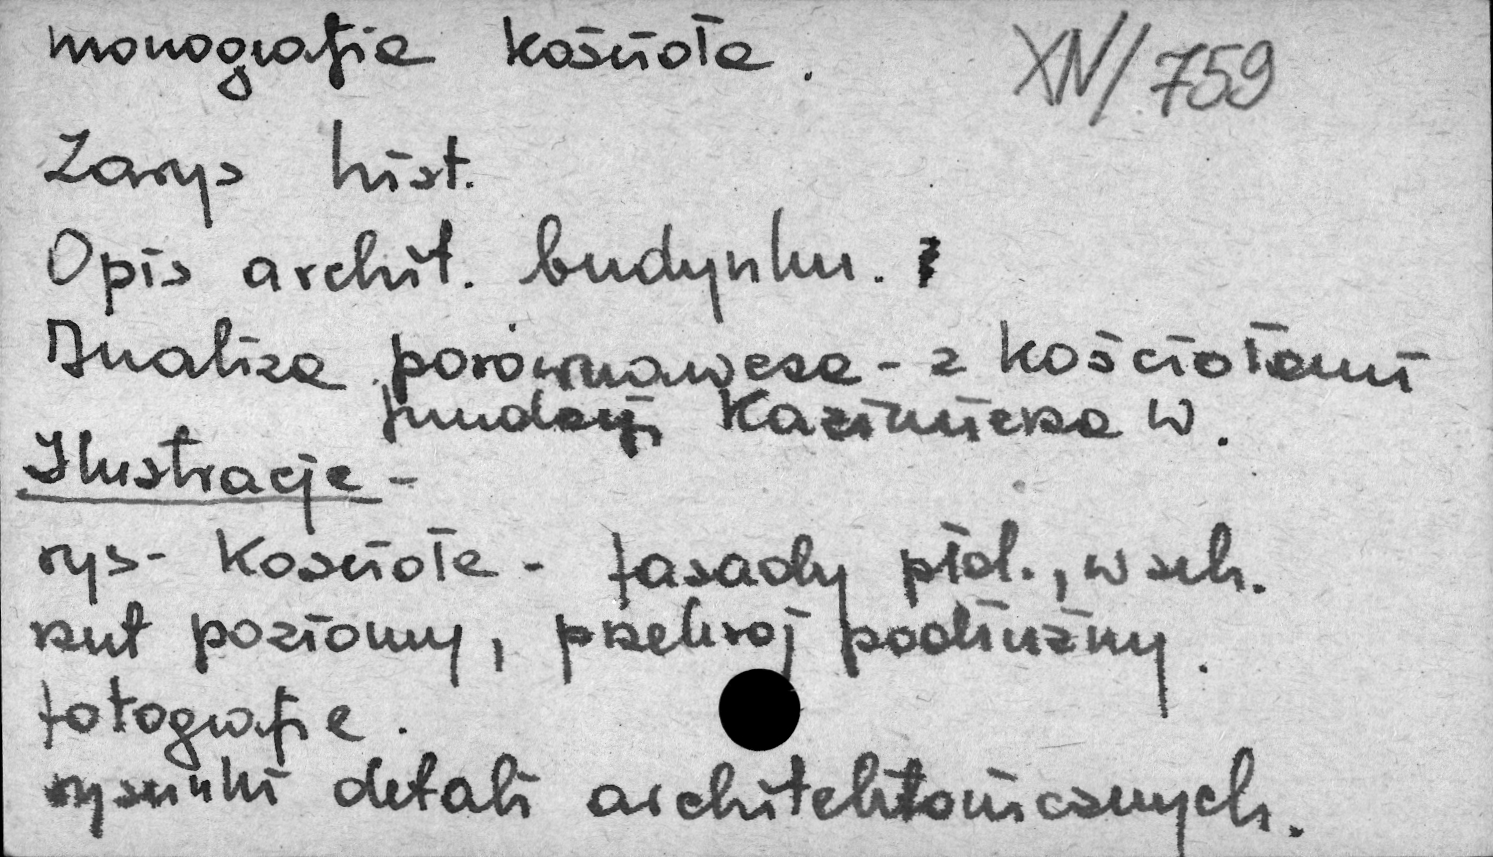 monografia kościoła. XIV/759
Zarys hist.
Opis archit. budynku.
Analiza porównawcza - z kościołami
fundacji Kazimierza W.
Ilustracje -
rys - Kościoła - fasady płd., wsch.
rzut poziomy, przekroj podłużny.
fotografie.
rysunki detali architektonicznych.